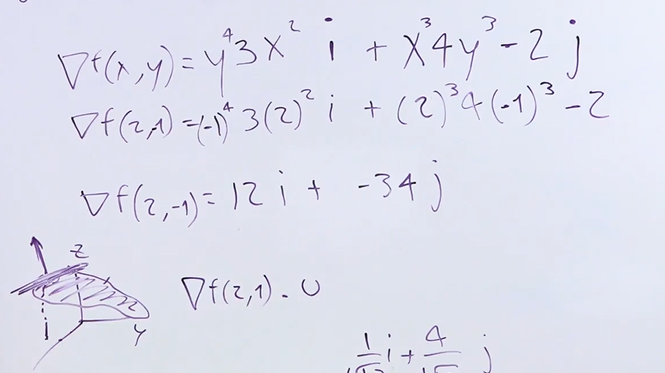 ∇f(x,y) = y⁴3x² i + x³4y³ - 2 j
∇f(2,1) = (-1)⁴ 3(2)² i + (2)³4(-1)³ - 2
∇f(2,-1) = 12 i + -34 j
z
∇f(2,1) . U
y
1/√ i + 4/√ j